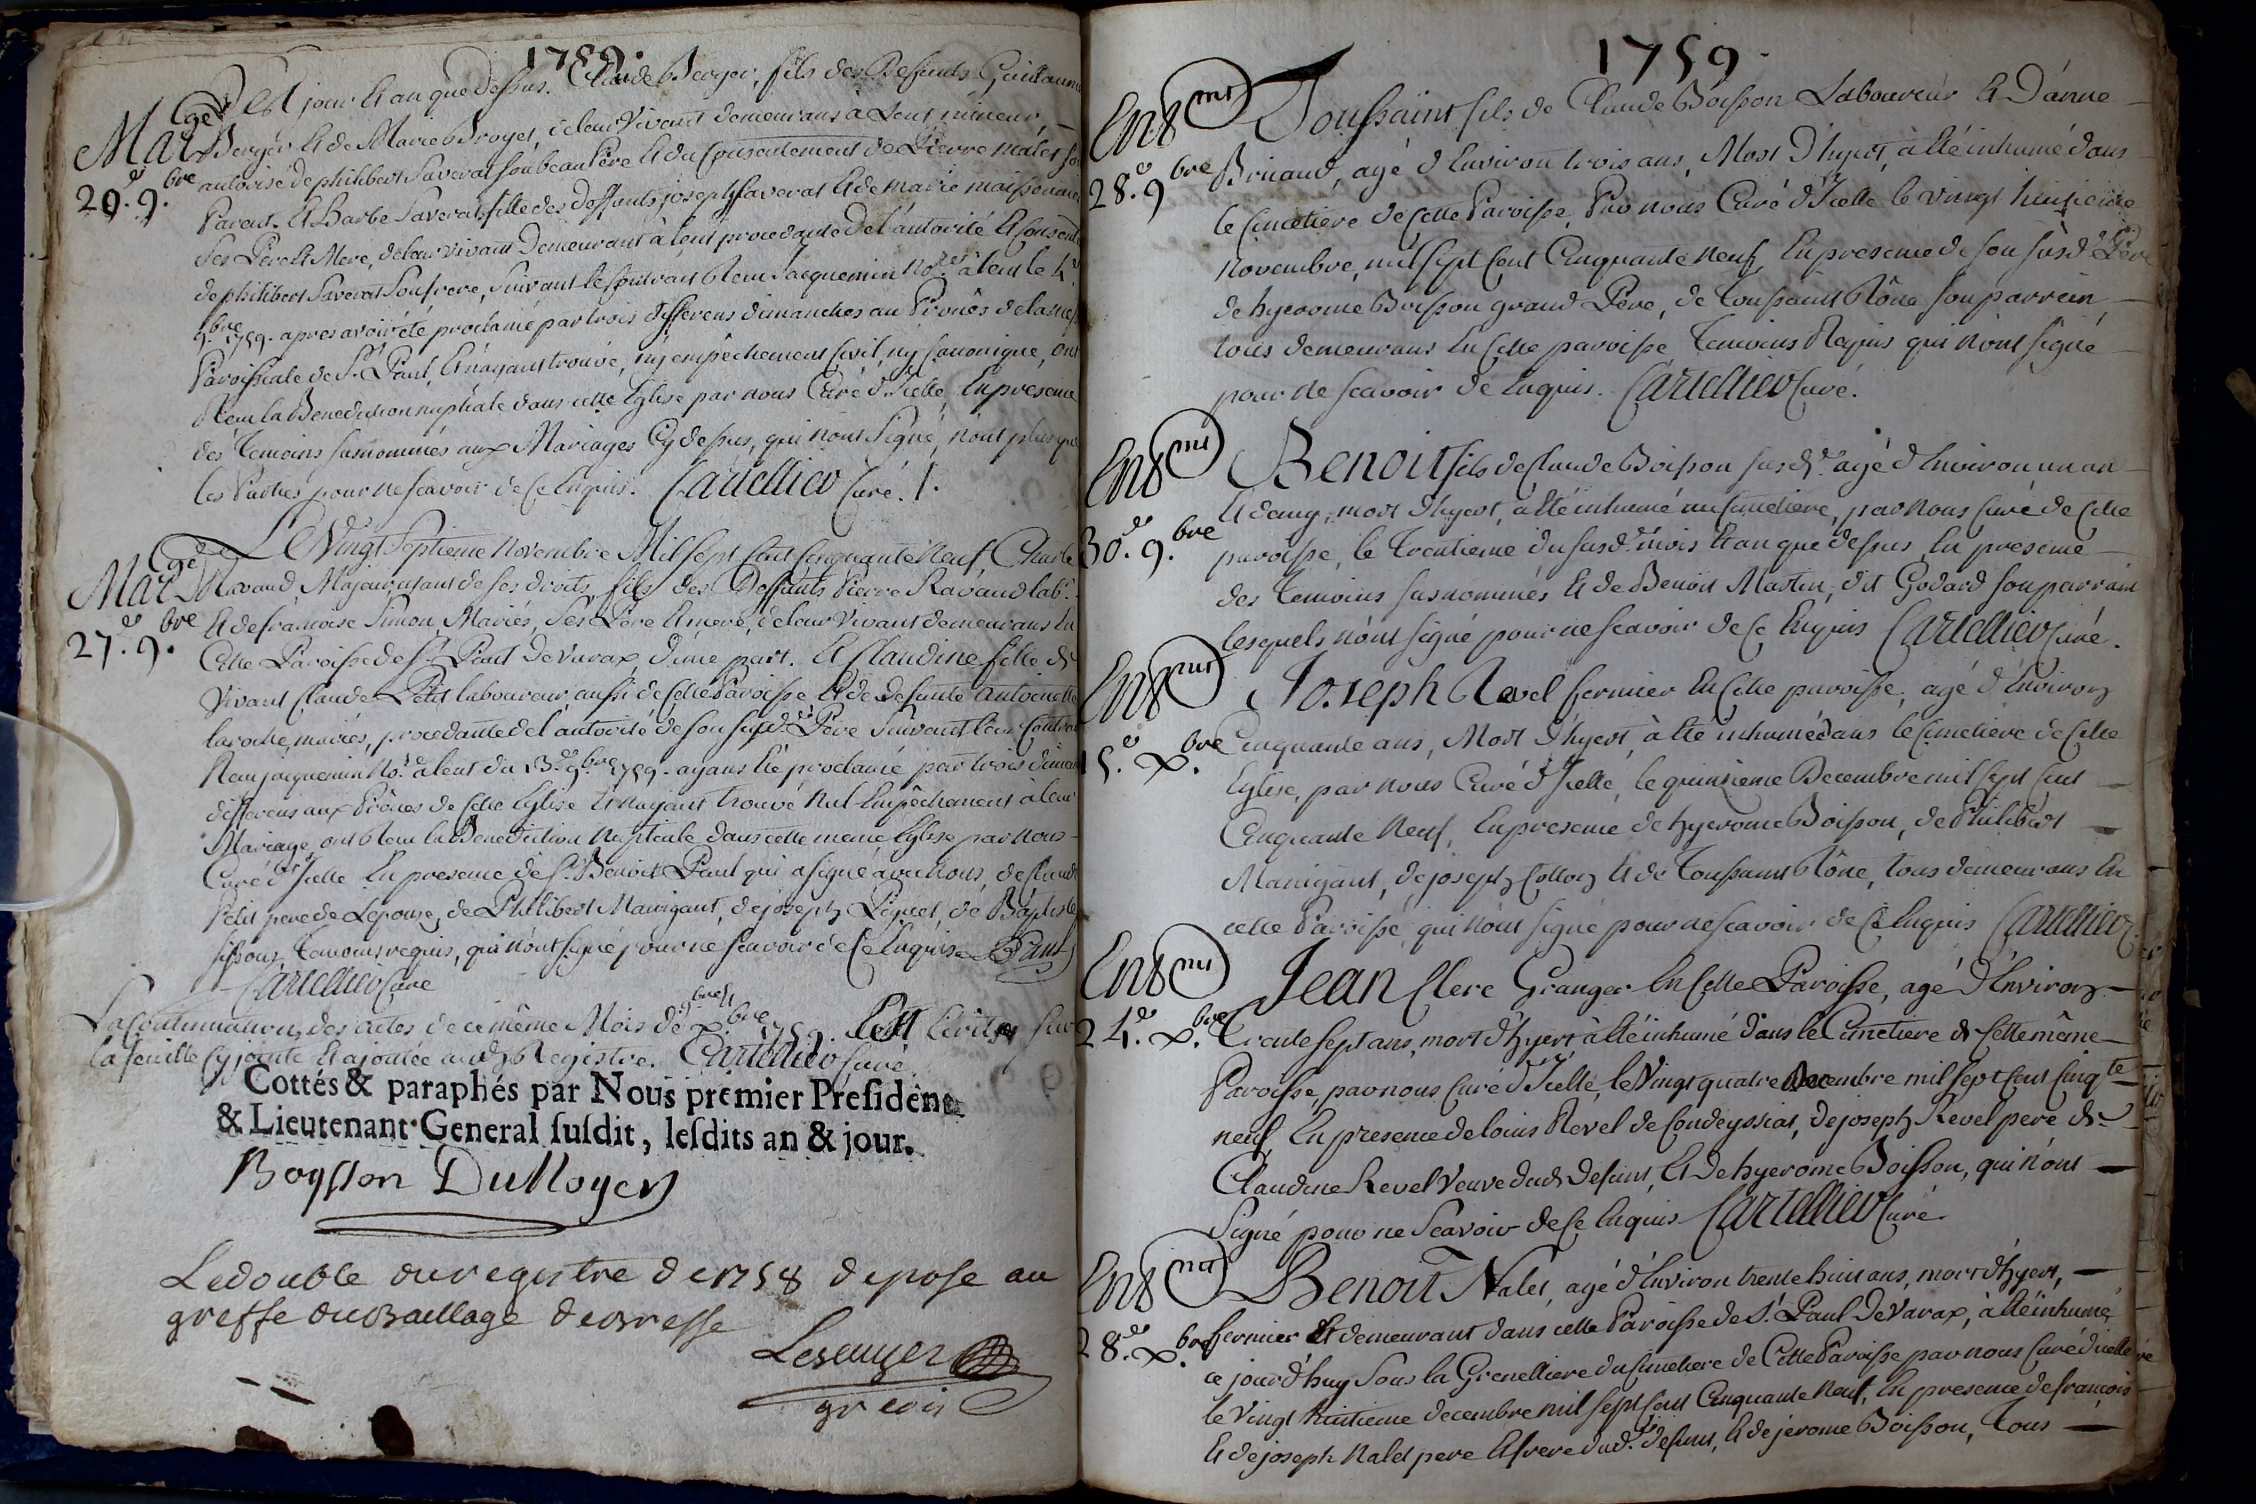 1759.
Mar.ge Cest jour et an que dessus. Claude Berger, fils des defunts Guillaume
20.e 9.bre Berger et de Marie Broyer, de leur Vivant demeurans à Lent mineur
autorisé de philibert Saverat son beau Père et du Consentement de Pierre
Parent. Et Barbe Saverat fille des deffunts joseph Saverat et de marie
Ses Père et Mere, de leur vivant Demeurant à lent procedante de l'autorité et
de philibert Saverat Son frere, Suivant le Contrat Reçu Jacquemin No.re à lent le
9.bre 1759. apres avoir été proclamé par trois differens dimanches au Prônes de la
Paroissiale de S.t Paul, et n'ayant trouvé, ny empêchement Civil, ny Canonique, ont
Reçu la Benediction nuptiale dans cette Eglise par nous Curé d'Icelle En presence
des Temoins susnommés aux Mariages Cy dessus, qui n'ont Signé, non plus que
les Parties pour ne scavoir de ce Enquis. Cartellier Curé.
Mar.ge Le Vingt Septieme Novembre Mil sept Cent Cinquante Neuf, Charle
27.e 9.bre Ravaud Majeur, usant de ses droits, fils des Deffunts Pierre Ravaud lab.r
et de francoise Simon, Mariés, Ses Père et mere, de leur Vivant demeurans En
Cette Paroisse de S.t Paul de Varax, d'une part. Et Claudine fille de
Vivant Claude Petit laboureur aussi de Cette Paroisse et de defunte Antoinette
laroche, mariés, procedante de l'autorité de son susd. Père Suivant leur Contrat
Reçu jacquemin No.re à lent du 13.e 9.bre 1759. ayans été proclamé par trois diman
differens aux Prônes de Cette Eglise et n'ayant trouvé Nul Empêchement à leur
Mariage, ont Reçu la Benediction Nuptiale dans cette meme Eglise par nous
Curé d'Icelle En presence de S.r Benoit Paul qui a signé avec nous, de Claude
Petit pere de Lepouse, de Philibert Manigant, de joseph Piquet, de Baptiste
Temoins requis, qui n'ont signé pour ne scavoir de Ce Enquis. B Paul
Cartellier Curé
La Continuation des actes de ce même Mois de 9.bre et X.bre 1759. est Ecrite sur
la feuille cy jointe et ajoutée aud. Registre. Cartellier Curé.
Cottés & paraphés par Nous premier Président
& Lieutenant General susdit, lesdits an & jour.
Boysson DuNoyer
Le double du registre de 1758 depose au
greffe du Baillage de Bresse
greffier
1759.
Ent.mt Toussaint fils de Claude Boisson Laboureur et D'anne
28.e 9.bre Bruaud, agé d'Environ trois ans, Mort D'hyert, à Eté inhumé dans
le Cimetiere de Cette Paroisse, Par nous Curé d'Icelle le Vingt huitieme
Novembre, mil sept Cent Cinquante Neuf, En presence de son susd. Pere
de hyerome Boisson grand Père, de Toussaint Rône son parrein,
tous demeurans En Cette paroisse Temoins Requis qui n'ont signé
pour ne scavoir de Enquis. Cartellier Curé.
Ent.mt Benoit fils de Claude Boisson susd.t agé d'Environ un an
30.e 9.bre et demy, mort d'hyert, a été inhumé au Cimetiere, par nous Curé de Cette
paroisse, le Trentieme du susd. mois et an que dessus En presence
des Temoins susnommés et de Benoit Martin, dit Godard son parrain
lesquels n'ont signé pour ne scavoir de Ce Enquis Cartellier Curé.
Ent.mt Joseph Revel fermier En Cette paroisse, agé d'Environ
15.e X.bre Cinquante ans, Mort D'hyert, à Eté inhumé dans le Cimetiere de Cette
Eglise, par nous Curé d'Icelle, le quinsieme Decembre mil sept Cent
Cinquante Neuf, En presence de hyerome Boisson, de Philibert
Manigant, de joseph Colloz et de Toussaint Rône, tous demeurans En
cette Paroisse, qui n'ont signé pour ne scavoir de Ce Enquis Cartellier
Ent.mt Jean Clerc Granger En Cette Paroisse, agé d'Environ
24.e X.bre Trente sept ans, mort d'hyert à Eté inhumé dans le Cimetiere de Cette même
Paroisse, par nous Curé d'Icelle, le Vingt quatre Decembre mil sept Cent Cinq.te
neuf, En presence de louis Revel de Condeyssiat, de joseph Revel pere de
Claudine Revel Veuve dud. Defunt, et de hyerome Boisson, qui n'ont
Signé pour ne Scavoir de Ce Enquis Cartellier Curé.
Ent.mt Benoit Nalet, agé d'Environ trente huit ans, mort d'hyert,
28.e X.bre fermier Et demeurant dans cette Paroisse de S.t Paul de Varax, à été inhumé
ce jourd'huy Sous la Grenelliere du Cimetiere de Cette Paroisse par nous Curé d'icelle
le Vingt huitieme decembre mil sept Cent Cinquante Neuf, En presence de francois
Et de joseph Nalet pere et frere dud.t defunt, et de jerome Boisson, Tous